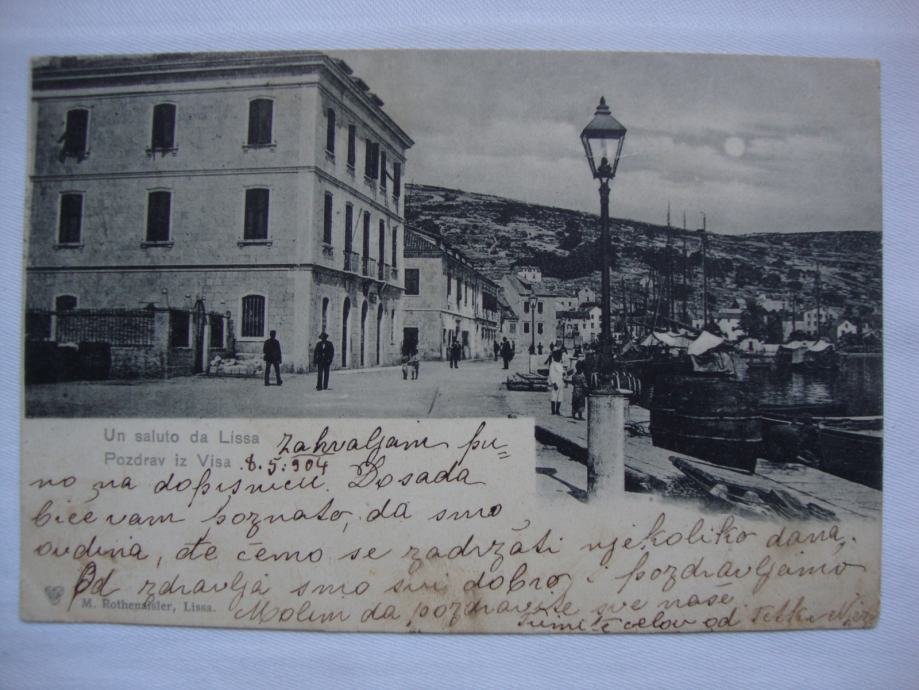 Un saluto da Lissa
Pozdrav iz Visa
8.5.904
zahvaljam pu=
no na dopisnicu. Dosada
biće vam poznato, da smo
ovdina, đe ćemo se zadržati njekoliko dana.
Od zdravlja smo svi dobro, i pozdravljamo
Molim da pozdravite sve naše
M. Rothenaisler, Lissa.
od Tetke